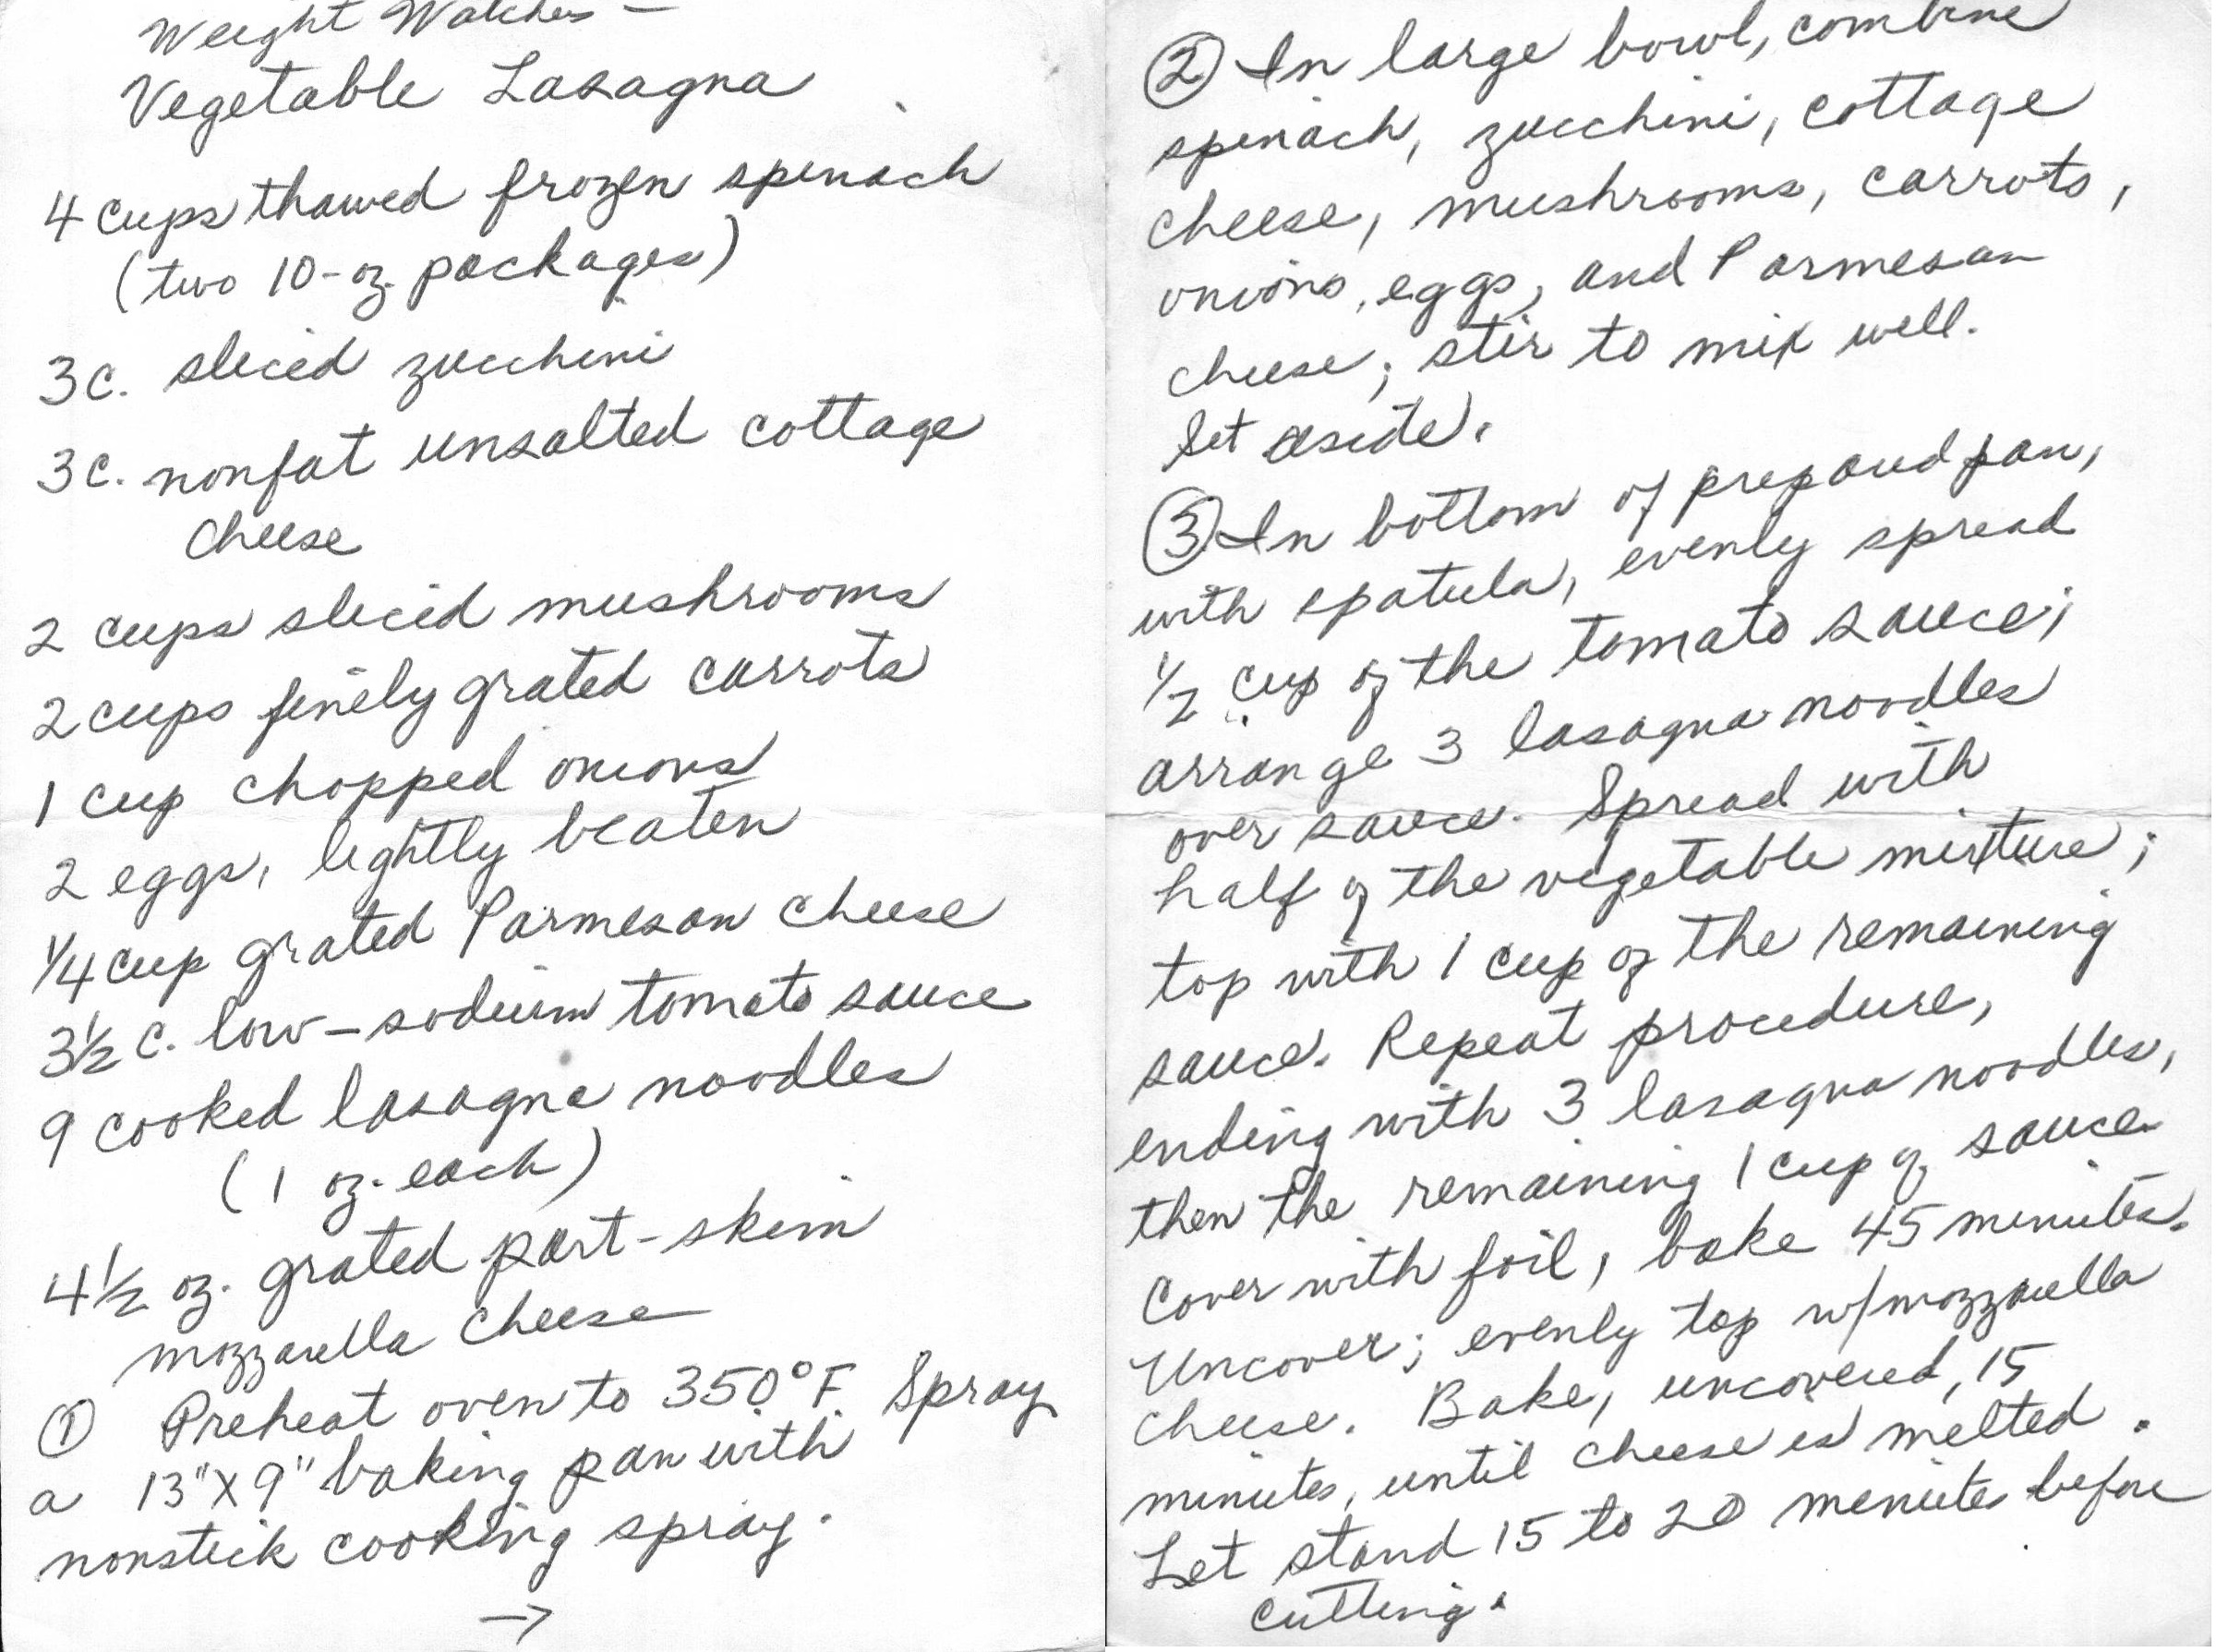 Weight Watchers –
Vegetable Lasagna
4 cups thawed frozen spinach
(two 10-oz. packages)
3 c. sliced zucchini
3 c. nonfat unsalted cottage
cheese
2 cups sliced mushrooms
2 cups finely grated carrots
1 cup chopped onions
2 eggs, lightly beaten
1/4 cup grated Parmesan cheese
3½ c. low-sodium tomato sauce
9 cooked lasagne noodles
(1 oz. each)
4½ oz. grated part-skim
mozzarella cheese
① Preheat oven to 350°F. Spray
a 13"X9" baking pan with
nonstick cooking spray.
→
② In large bowl, combine
spinach, zucchini, cottage
cheese, mushrooms, carrots,
onions, eggs, and Parmesan
cheese; stir to mix well.
Set aside.
③ In bottom of prepared pan,
with spatula, evenly spread
1/2 cup of the tomato sauce;
arrange 3 lasagna noodles
over sauce. Spread with
half of the vegetable mixture;
top with 1 cup of the remaining
sauce. Repeat procedure,
ending with 3 lasagna noodles,
then the remaining 1 cup of sauce.
Cover with foil, bake 45 minutes.
Uncover; evenly top w/mozzarella
cheese. Bake, uncovered, 15
minutes, until cheese is melted.
Let stand 15 to 20 minutes before
cutting.